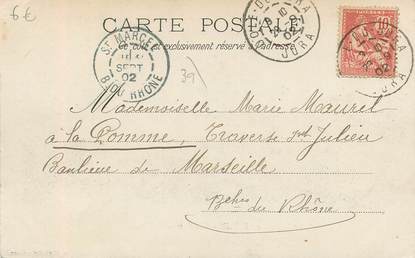 6 €
CARTE POSTALE
Ce côté est exclusivement réservé à l'adresse
ST MARCEL
SEPT
02
B. DU RHONE
39
JURA
02
10
JURA
02
Mademoiselle Marie Maurel
à la Pomme, Traverse St Julien
Banlieue de Marseille
Bches du Rhône